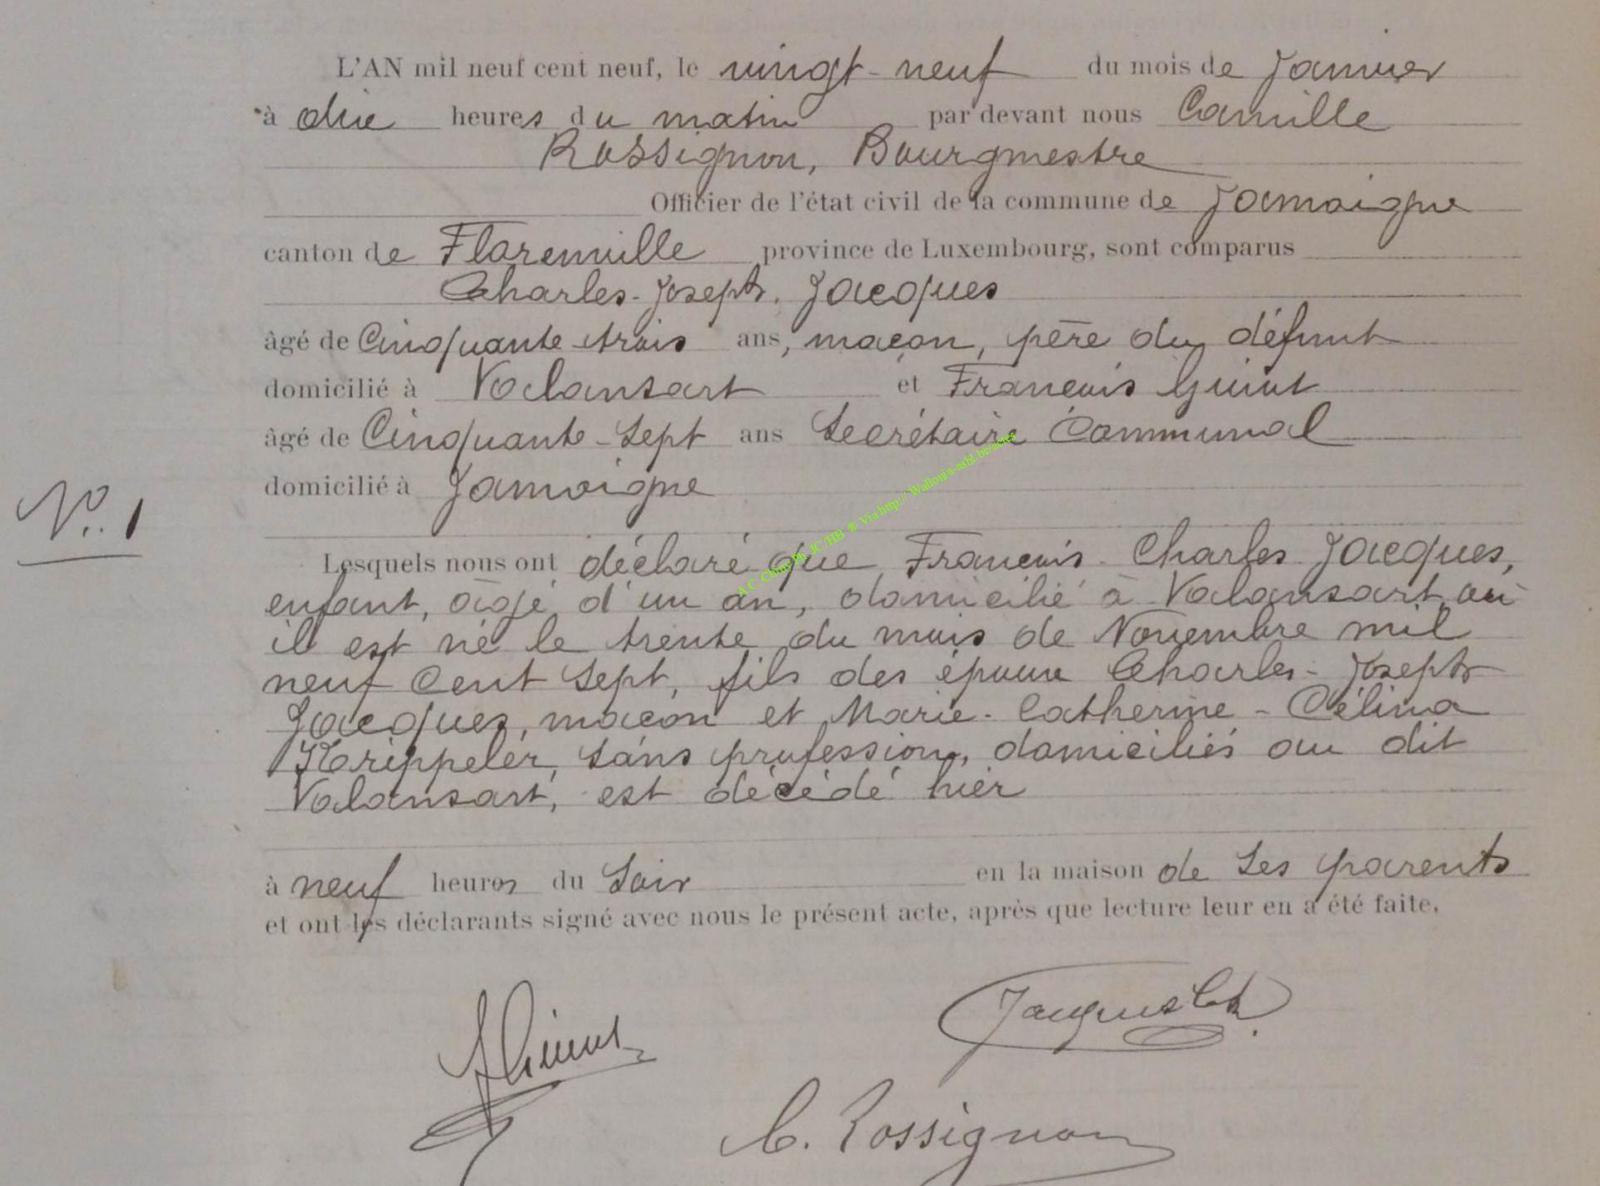 L'AN mil neuf cent neuf, le vingt-neuf du mois de Janvier
à dix heures du matin par devant nous Camille
Rossignon, Bourgmestre
Officier de l'état civil de la commune de Jamoigne
canton de Florenville province de Luxembourg, sont comparus
Charles-Joseph Jacques
âgé de Cinquante-trois ans, maçon, père du défunt
domicilié à Valansart et François
âgé de Cinquante-Sept ans Secrétaire Communal
domicilié à Jamoigne
No. 1
Lesquels nous ont déclaré que François-Charles Jacques,
enfant, âgé d'un an, domicilié à Valansart, où
il est né le trente du mois de Novembre mil
neuf Cent Sept, fils des époux Charles-Joseph
Jacques, maçon et Marie-Catherine-Célina
Krippeler, sans profession, domiciliés au dit
Valansart, est décédé hier
à neuf heures du Soir en la maison de Ses parents
et ont les déclarants signé avec nous le présent acte, après que lecture leur en a été faite,
Jacques Ch.
C. Rossignon